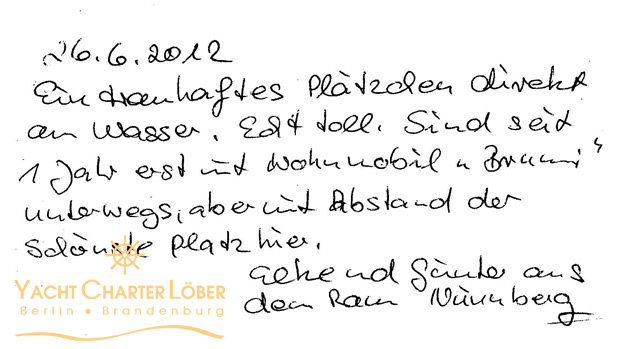 26.6.2012
Ein traumhaftes Plätzchen direkt
am Wasser. Echt toll. Sind seit
1 Jahr erst mit Wohnmobil "Brumi"
unterwegs, aber mit Abstand der
schönste Platz hier.
Elke und Günter aus
dem Raum Nürnberg
YACHT CHARTER LÖBER
Berlin • Brandenburg